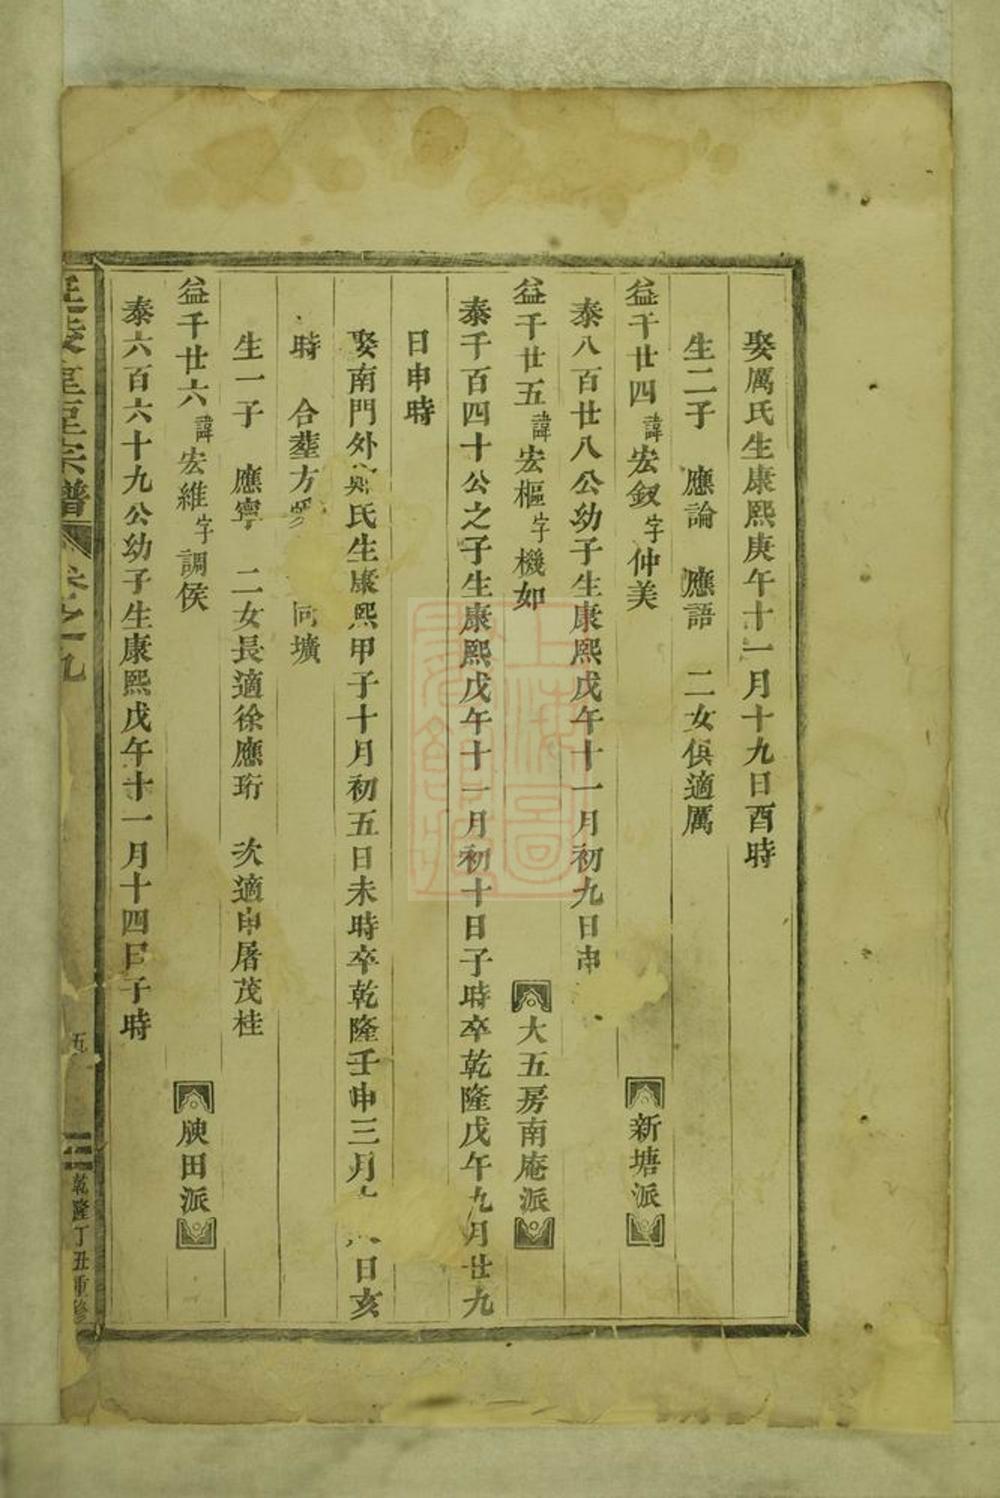 娶厲氏生康熙庚午十一月十九日酉時
生二子 應論 應語 二女俱適厲
益千廿四諱宏釵字仲美 新塘派
泰八百廿八公幼子生康熙戊午十一月初九日申
益千廿五諱宏樞字機如 大五房南庵派
泰千百四十公之子生康熙戊午十一月初十日子時卒乾隆戊午九月廿九
日申時
娶南門外鄭氏生康熙甲子十月初五日未時卒乾隆壬申三月 日亥
時 合塟方 同壙
生一子 應寧 二女長適徐應珩 次適申屠茂桂
益千廿六諱宏維字調侯 腴田派
泰六百六十九公幼子生康熙戊午十一月十四日子時
宗譜 卷之九 五 乾隆丁丑重修
上海圖書館藏